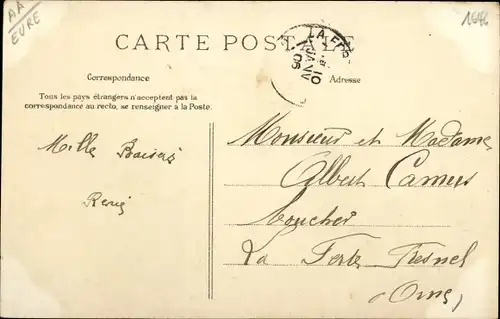 AA
EURE
CARTE POSTALE
LA FER
10
JANV
06
Correspondance
Adresse
Tous les pays étrangers n'acceptent pas la
correspondance au recto, se renseigner à la Poste.
Mille Baisers
Monsieur et Madame
Albert Camus
boucher
La Ferte Fresnel
Orne